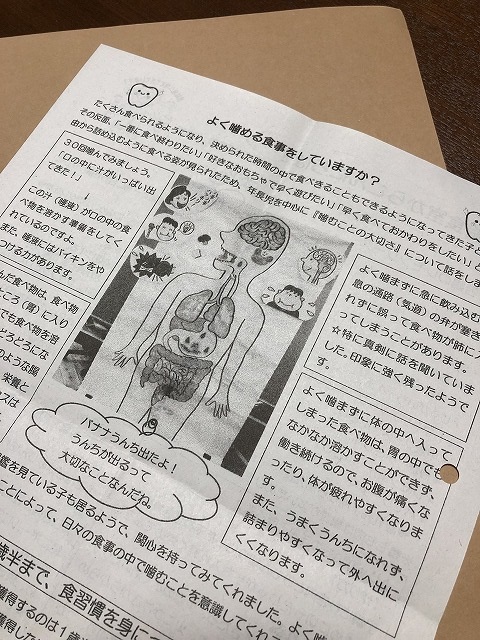 よく噛める食事をしていますか?
たくさん食べられるようになり、決められた時間の中で食べきることもできるようになってきた子ど
その反面、「一番に食べ終わりたい」「好きなおもちゃで早く遊びたい」「早く食べておかわりをしたい」と
由から詰め込むように食べる姿が見られたため、年長児を中心に『噛むことの大切さ』について話をしま
30回噛んでみましょう。
「口の中に汁がいっぱい出
てきた!」
↓
この汁(唾液)が口の中の食
べ物を溶かす準備をしてく
れているのですよ。
また、唾液にはバイキンをや
つける力があります。
んだ食べ物は、食べ物
ところ(胃)に入り
でも食べ物を溶
どろどろにな
のような腸
、栄養と
スは
よく噛まずに急に飲み込む
息の通路(気道)の弁が塞き
れずに誤って食べ物が肺に入
ってしまうことがあります。
☆特に真剣に話を聞いていま
した。印象に強く残ったようで
よく噛まずに体の中へ入って
しまった食べ物は、胃の中でも
なかなか溶かすことができず、
働き続けるので、お腹が痛くな
ったり、体が疲れやすくなりま
す。
また、うまくうんちになれず、
詰まりやすくなって外へ出に
くくなります。
バナナうんち出たよ!
うんちが出るって
大切なことなんだね。
鑑を見ている子も居るようで、関心を持ってみてくれました。よく噛
ことによって、日々の食事の中で噛むことを意識してくれ
歳半まで、食習慣を身に
獲得するのは1歳